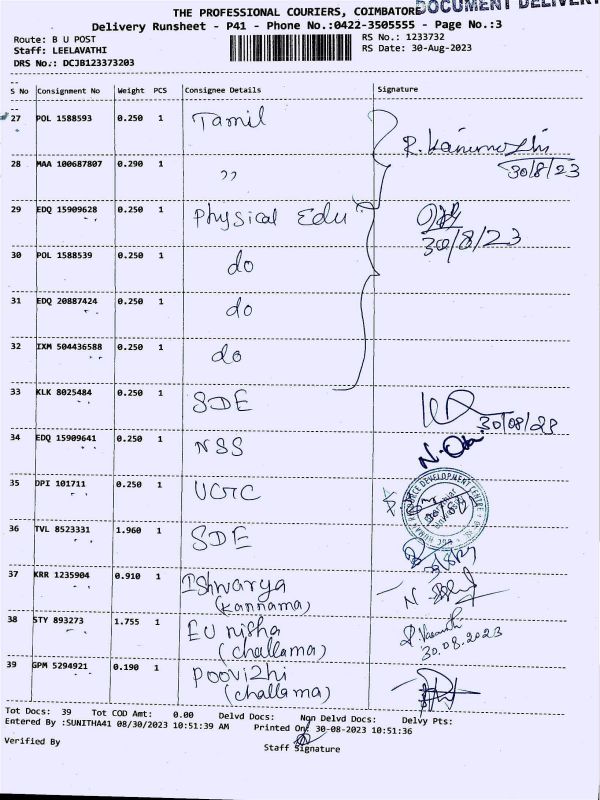 THE PROFESSIONAL COURIERS, COIMBATORE
DOCUMENT DELIVERY
Delivery Runsheet - P41 - Phone No.:0422-3505555 - Page No.:3
Route: B U POST
RS No.: 1233732
Staff: LEELAVATHI
RS Date: 30-Aug-2023
DRS No.: DCJB123373203
S No Consignment No Weight PCS Consignee Details Signature
27 POL 1588593 0.250 1 Tamil
R. Kanimozhi
30/8/23
28 MAA 100687807 0.290 1 ,,
29 EDQ 15909628 0.250 1 Physical Edu
30/8/23
30 POL 1588539 0.250 1 do
31 EDQ 20887424 0.250 1 do
32 IXM 504436588 0.250 1 do
33 KLK 8025484 0.250 1 SDE
30/08/23
34 EDQ 15909641 0.250 1 NSS
35 DPI 101711 0.250 1 UGC
36 TVL 8523331 1.960 1 SDE
37 KRR 1235904 0.910 1 Ishwarya
(Kannama)
38 STY 893273 1.755 1 EU nisha
(challama)
30.08.2023
39 GPM 5294921 0.190 1 Poovizhi
(challama)
Tot Docs: 39 Tot COD Amt: 0.00 Delvd Docs: Non Delvd Docs: Delvy Pts:
Entered By :SUNITHA41 08/30/2023 10:51:39 AM Printed On: 30-08-2023 10:51:36
Verified By
Staff Signature